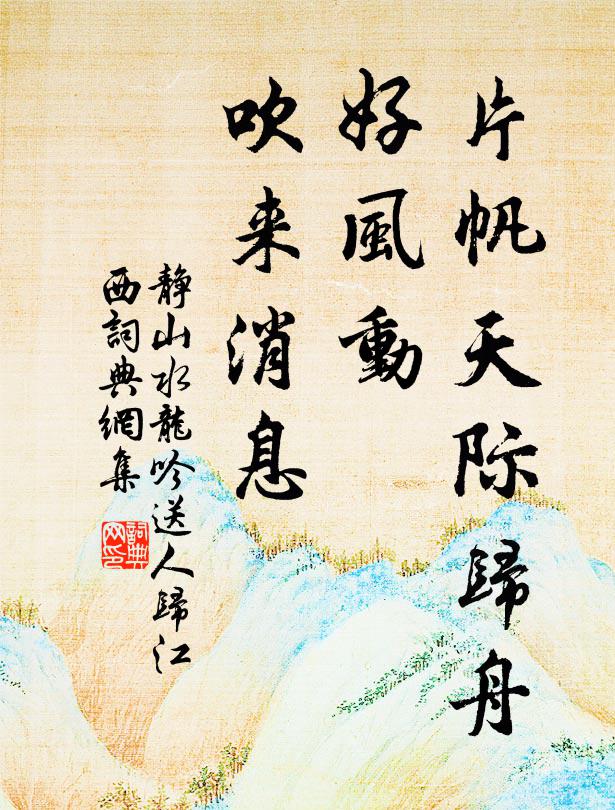 片帆天际歸舟
好風動
吹来消息
静山水龍吟送人歸江
西詞典網集
詞典
网印